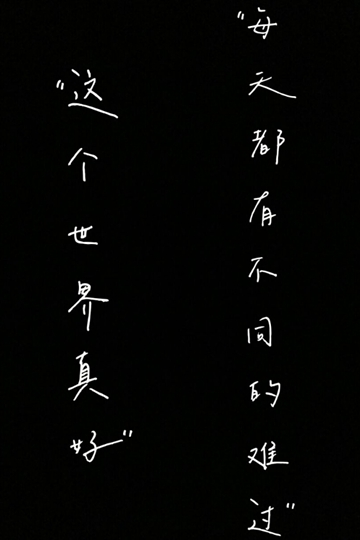 "每天都有不同的难过"
"这个世界真好"